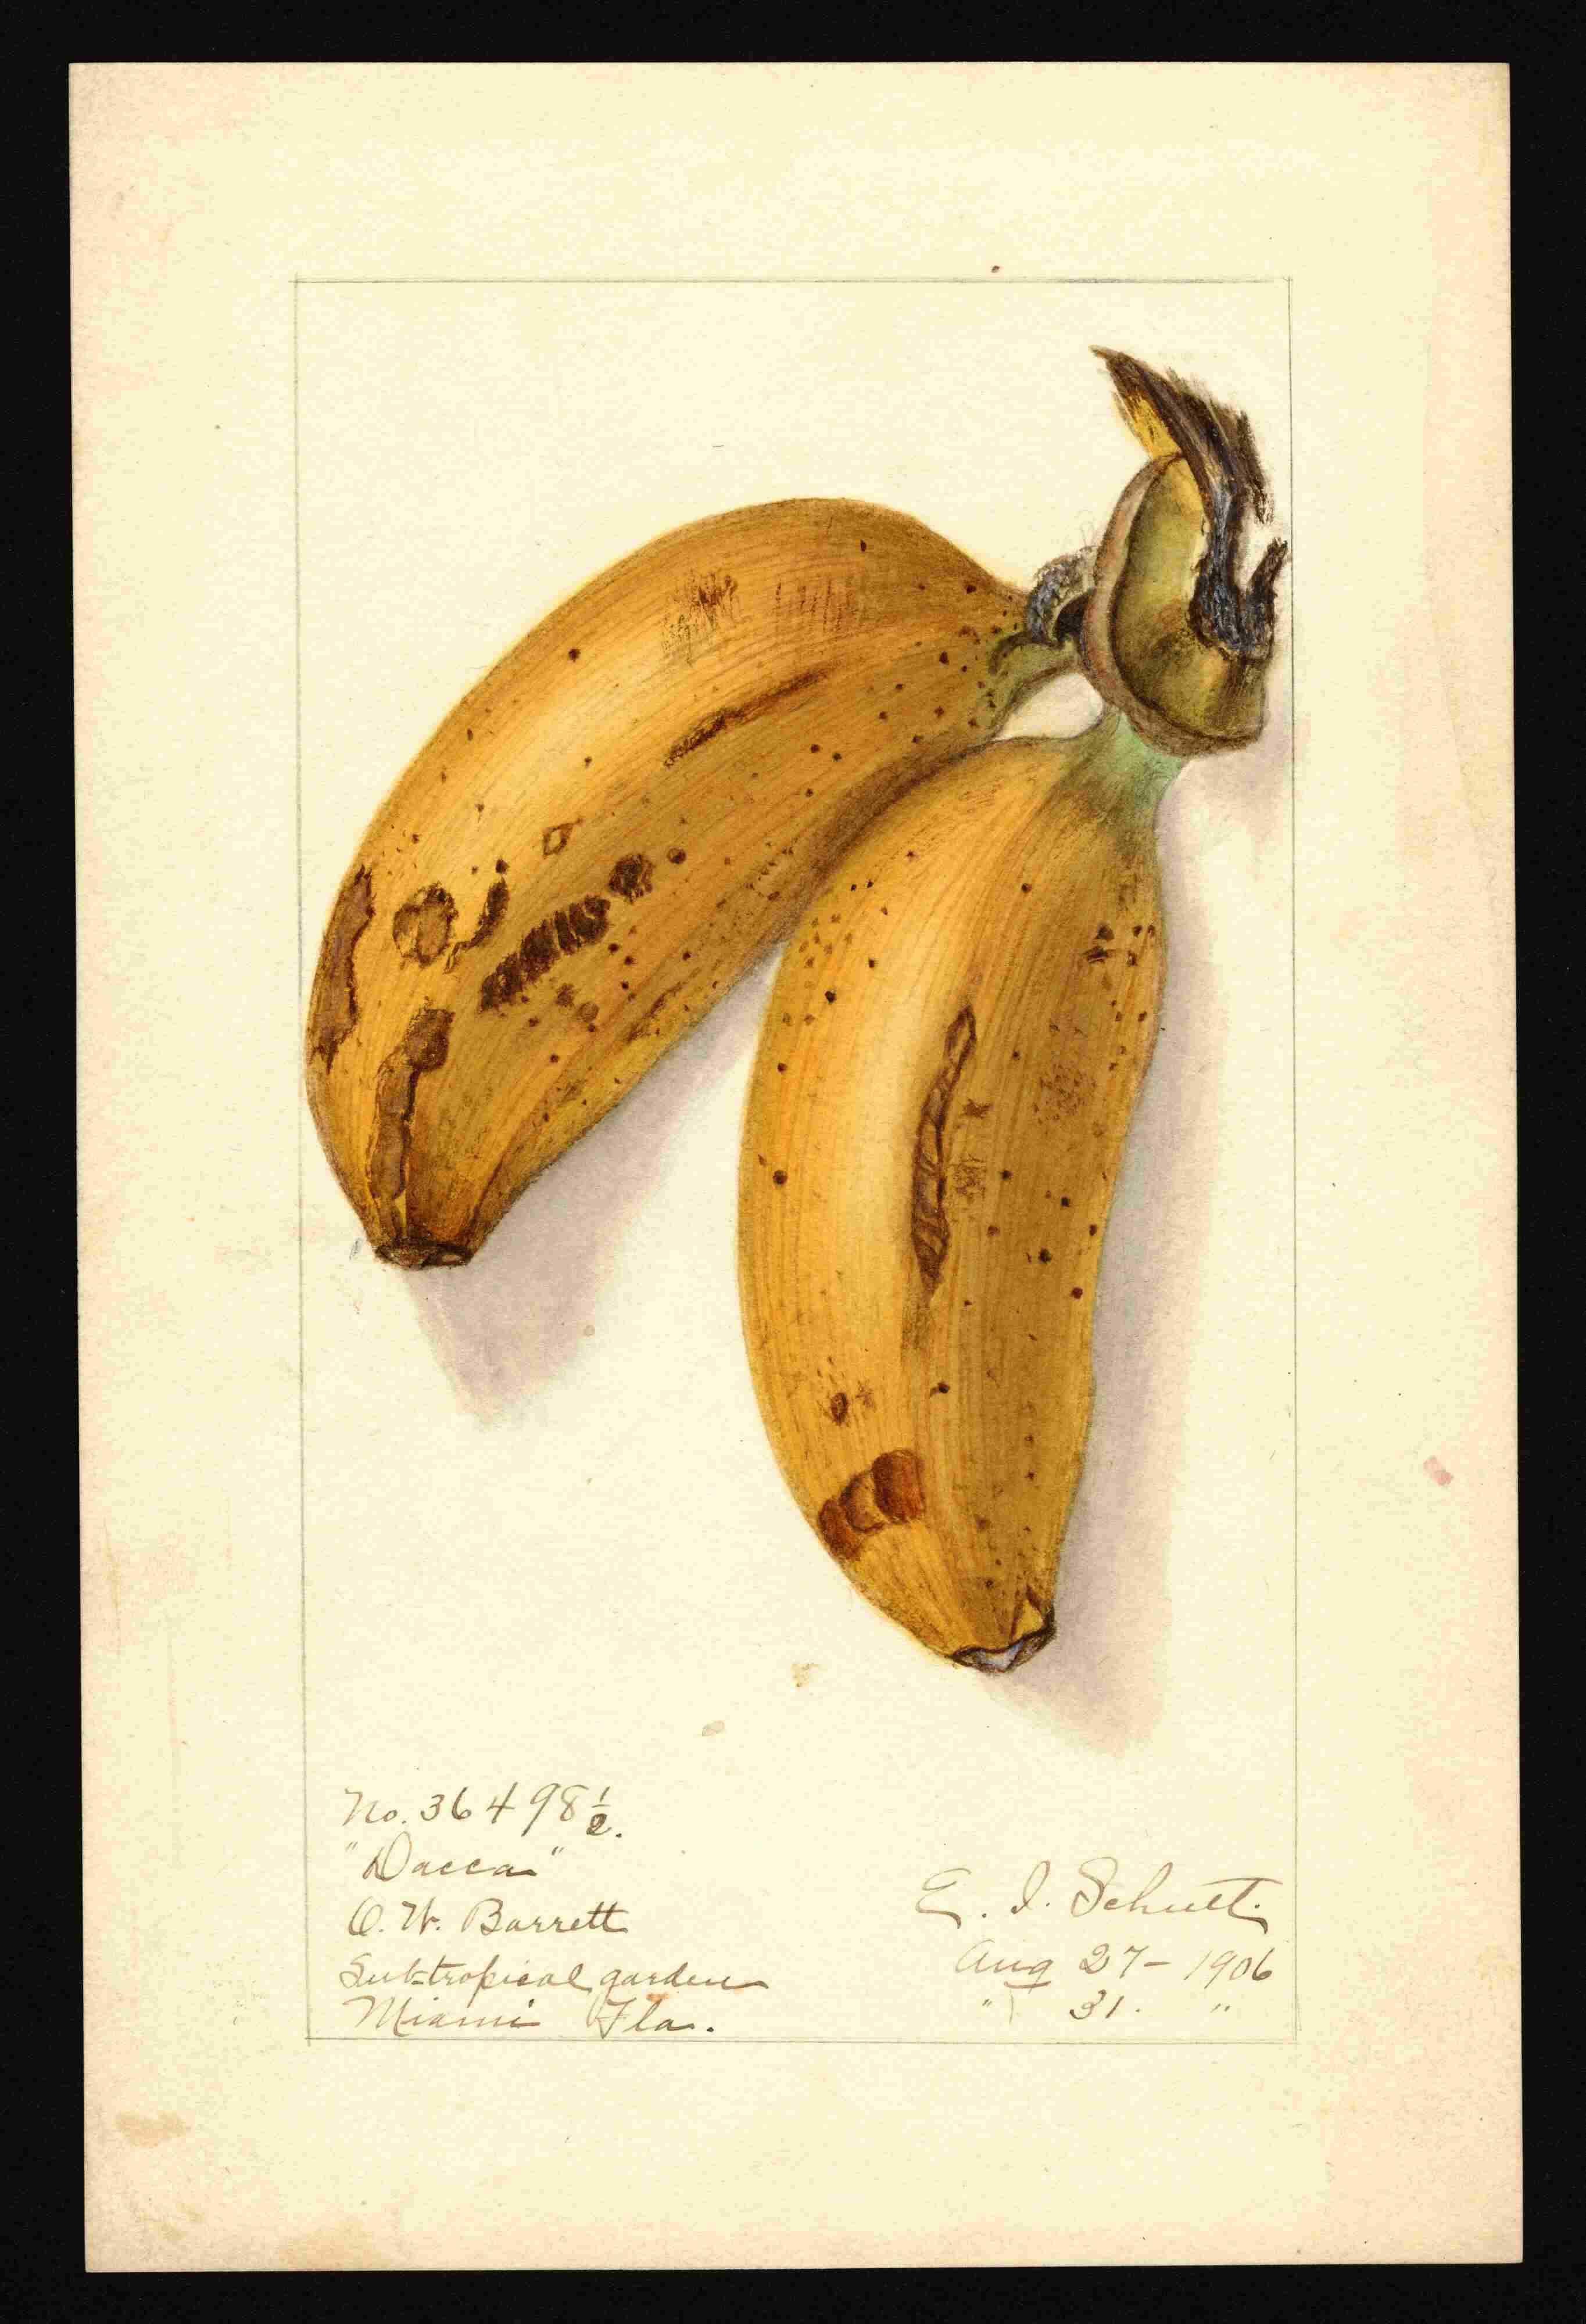 No. 36498 1/2.
"Dacca"
O. W. Barrett
Subtropical garden
Miami Fla.
E. I. Schutt.
Aug 27 - 1906
" 31. "